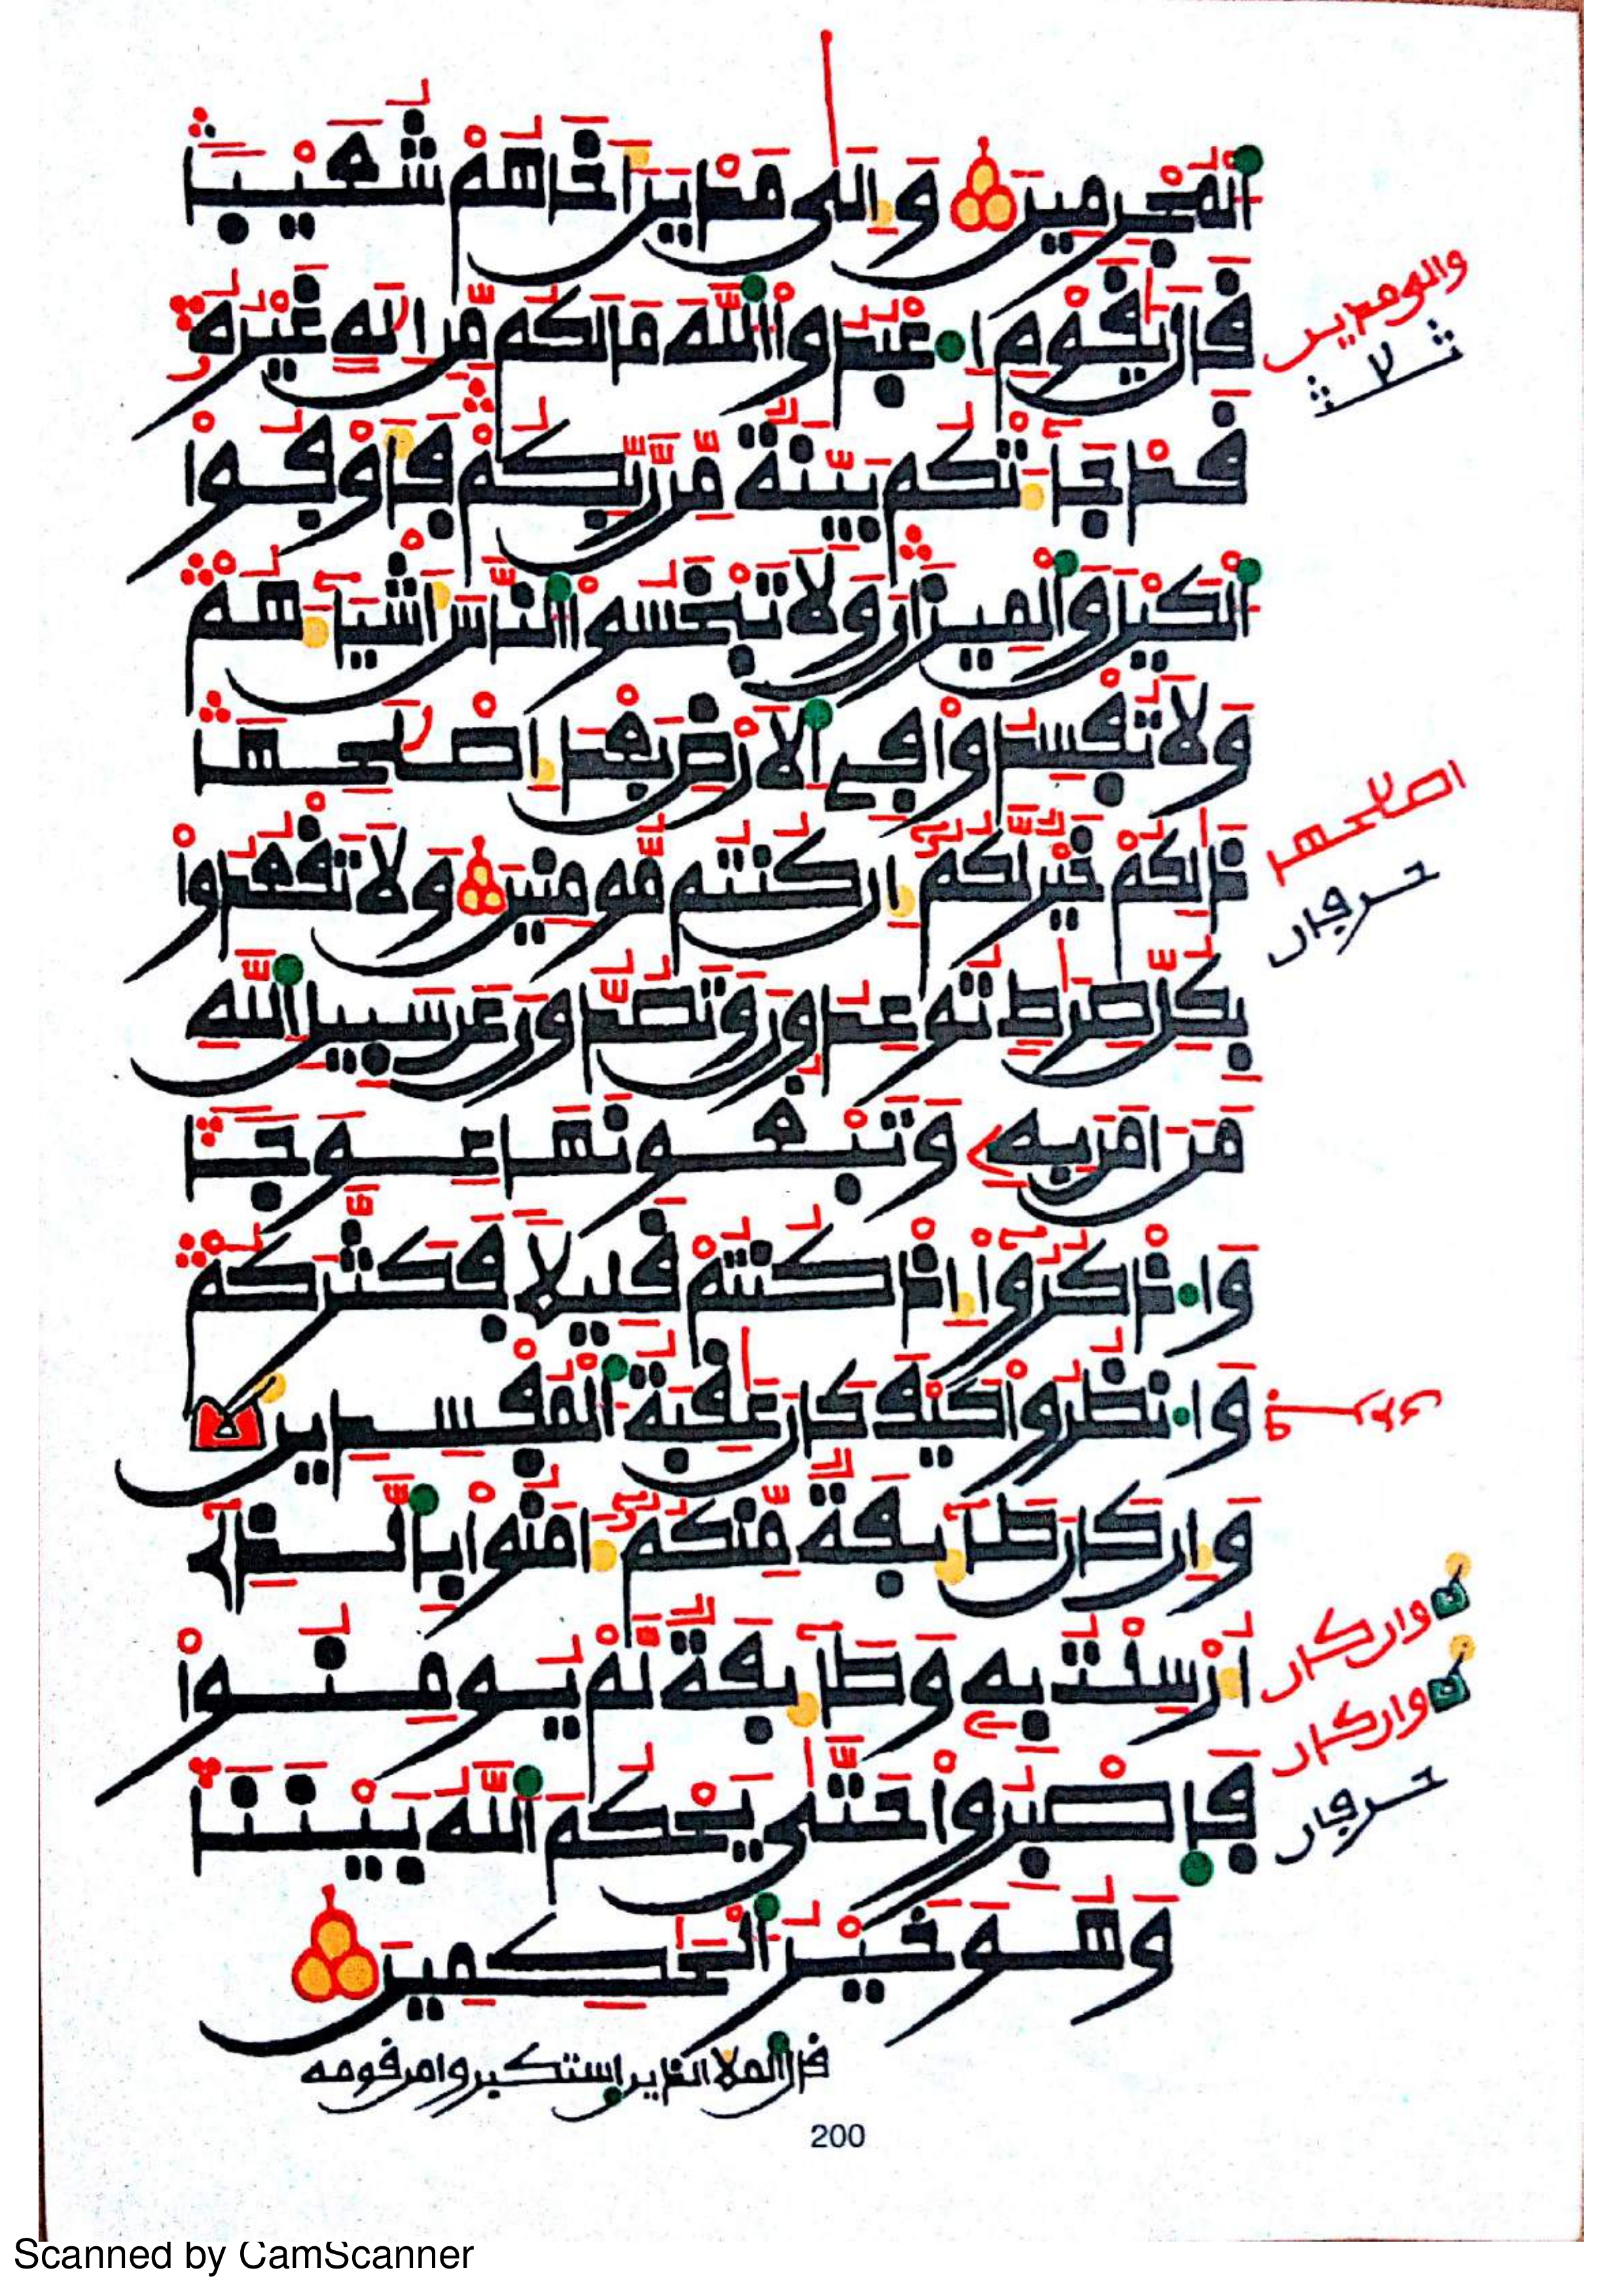 اَ۬لْمُجْرِمِينَ وَإِلَىٰ مَدْيَنَ أَخَاهُمْ شُعَيْباً
قَالَ يَٰقَوْمِ اِ۟عْبُدُوا۟ اُ۬للَّهَ مَالَكُم مِّنِ اِلَٰهٍ غَيْرُهُۥ
قَدْ جَآءَتْكُم بَيِّنَةٌ مِّن رَّبِّكُمْ فَأَوْفُوا۟
اُ۬لْكَيْلَ وَالْمِيزَانَ وَلَا تَبْخَسُوا۟ اُ۬لنَّاسَ أَشْيَآءَهُمْ
وَلَا تُفْسِدُوا۟ فِے اِ۬لَارْضِ بَعْدَ إِصْلَٰحِهَا
ذَٰلِكُمْ خَيْرٌ لَّكُمُۥٓ إِن كُنتُم مُّومِنِينَ وَلَا تَقْعُدُوا۟
بِكُلِّ صِرَٰطٍ تُوعِدُونَ وَتَصُدُّونَ عَن سَبِيلِ اِ۬للَّهِ
مَنَ اٰمَنَ بِهِۦ وَتَبْغُونَهَا عِوَجاً
وَاذْكُرُوٓا۟ إِذْ كُنتُمْ قَلِيلاً فَكَثَّرَكُمْ
وَانظُرُوا۟ كَيْفَ كَانَ عَٰقِبَةُ اُ۬لْمُفْسِدِينَ
وَإِن كَانَ طَآئِفَةٌ مِّنكُمُۥٓ ءَامَنُوا۟ بِالَّذِےٓ
أُرْسِلْتُ بِهِۦ وَطَآئِفَةٌ لَّمْ يُومِنُوا۟
فَاصْبِرُوا۟ حَتَّىٰ يَحْكُمَ اَ۬للَّهُ بَيْنَنَا
وَهُوَ خَيْرُ اُ۬لْحَٰكِمِينَ
قال الملا الذين استكبروا من قومه
والى مدين
اصلحها
حرفان
وان كان
وان كان
حرفان
200
Scanned by CamScanner